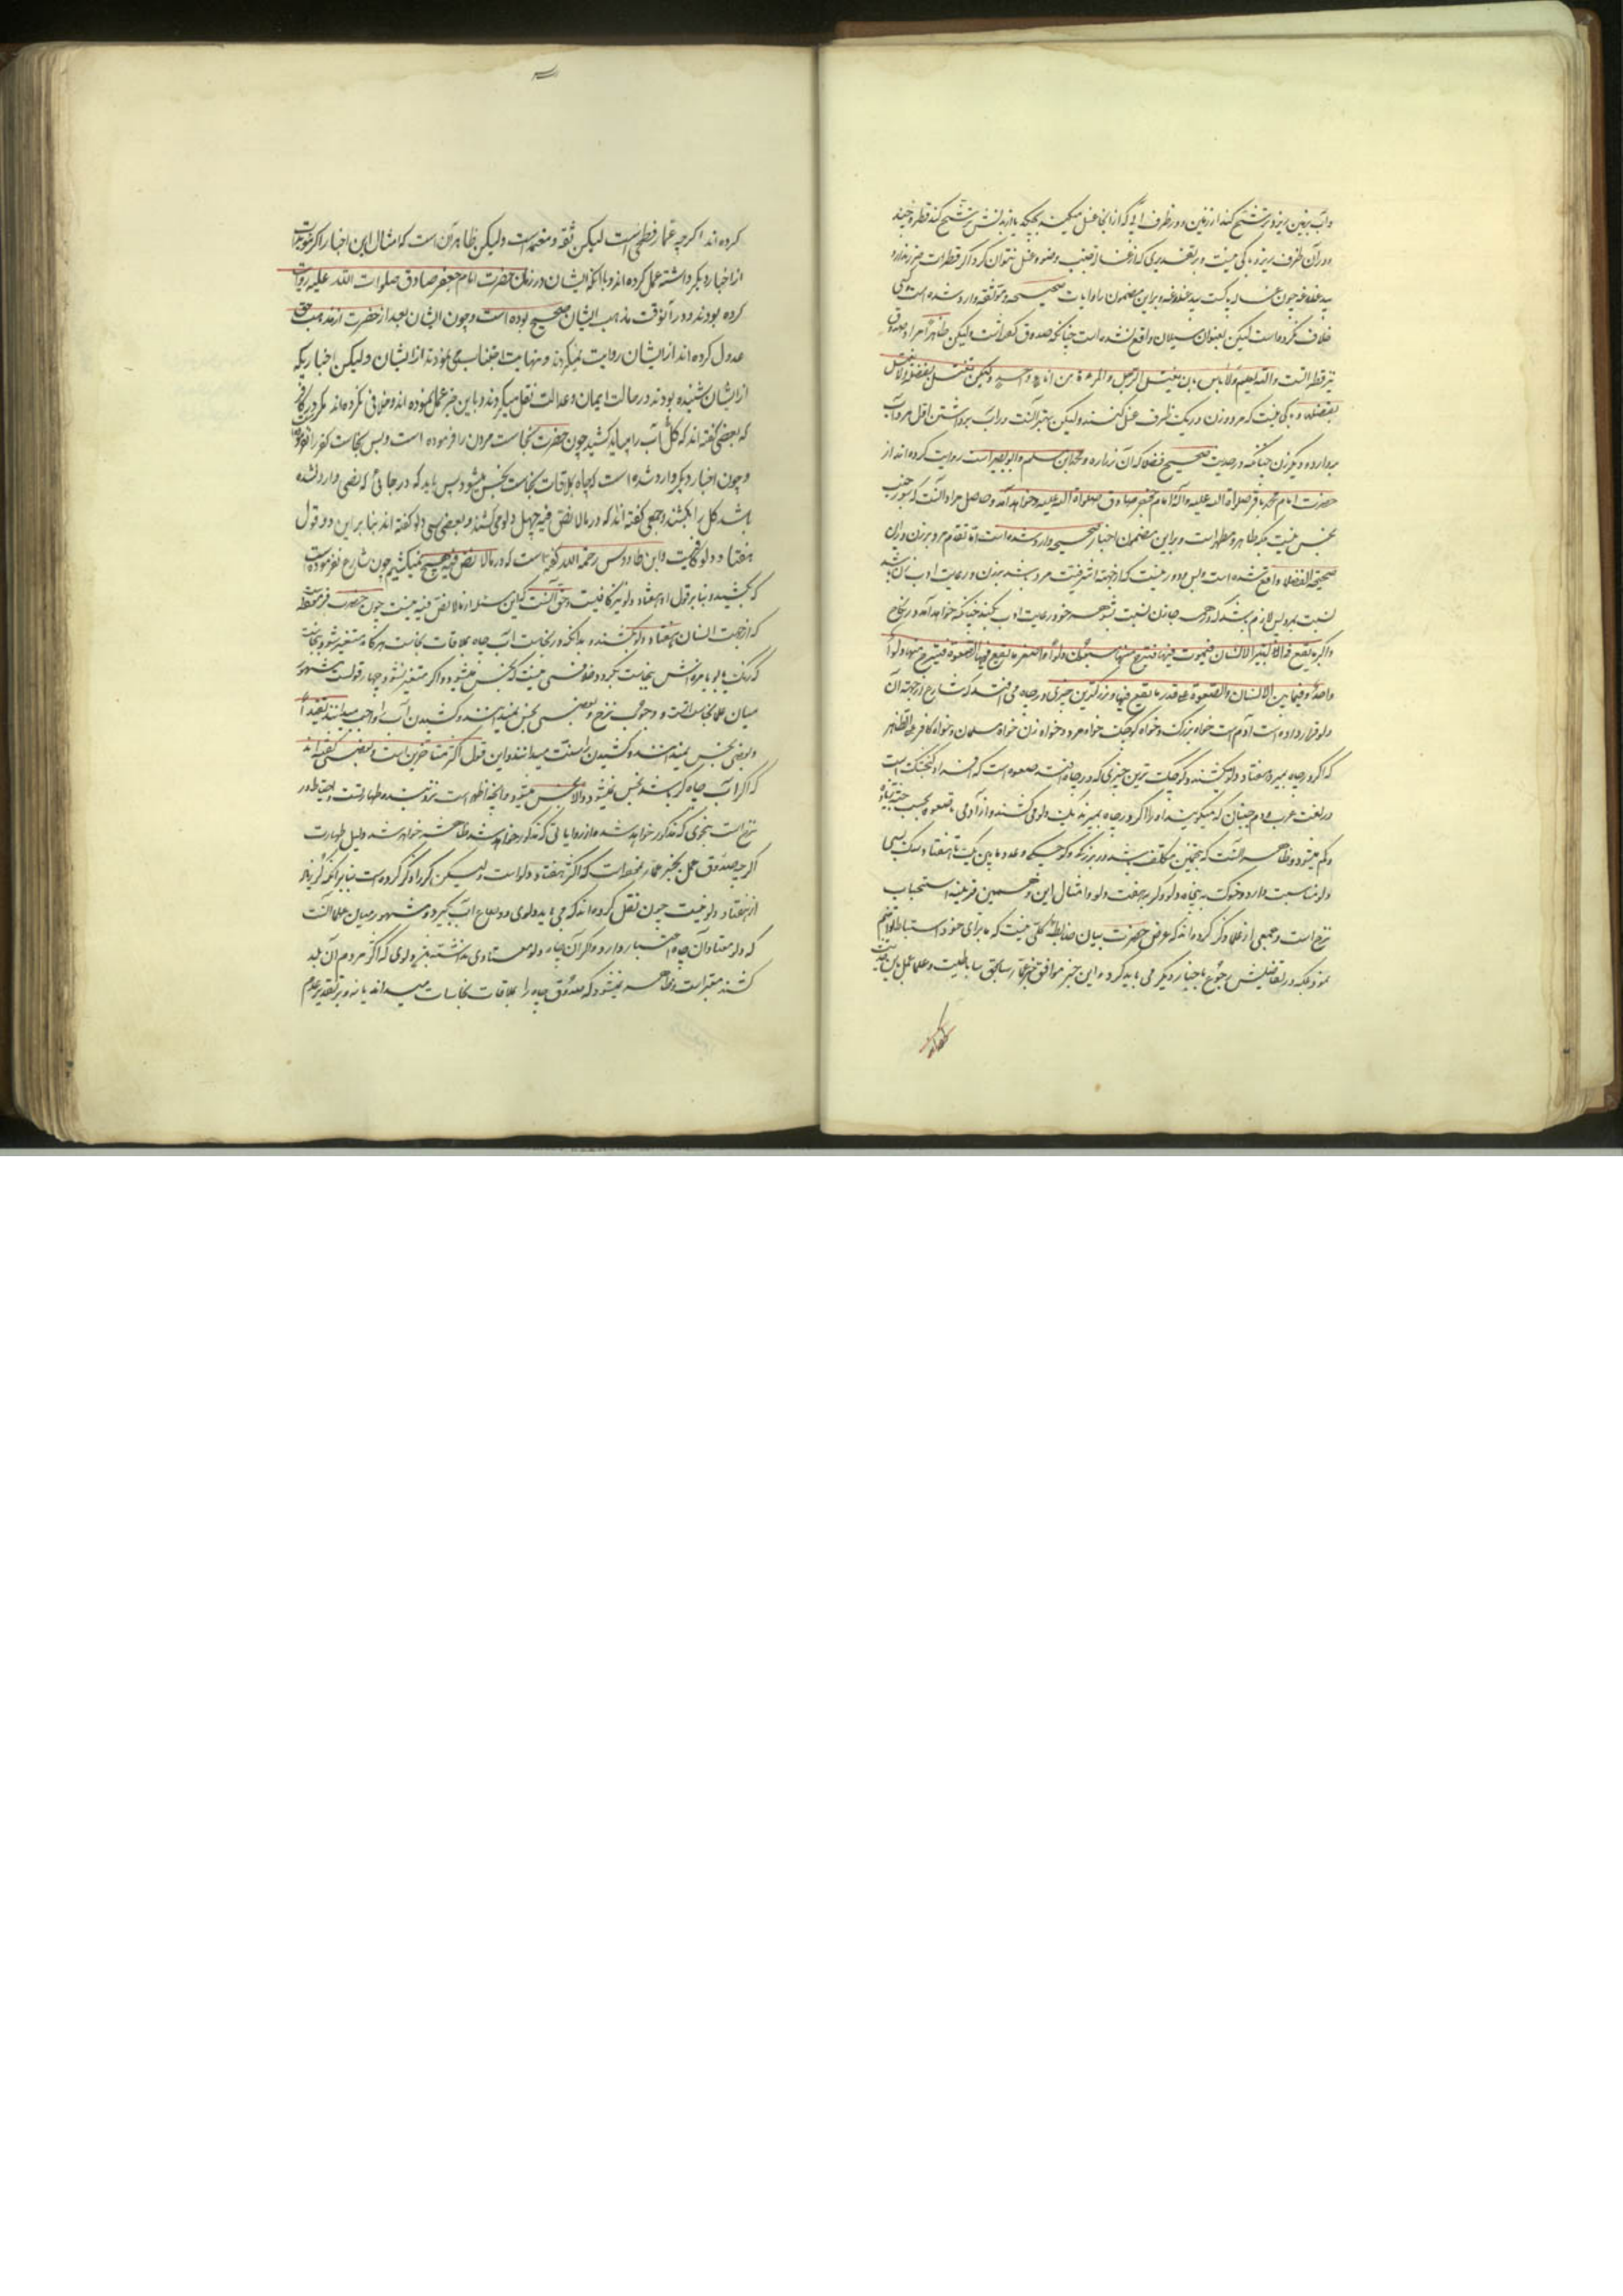 وآب بزمین ریزد و ترشح کند از زمین و در ظرف آبی که از آنجا غسل میکند بچکد یا از بدنش ترشح کند قطره چند
و در آن ظرف ریزد باکی نیست و بر تقدیری که از غسالۀ جنب وضو و غسل نتوان کرد اگر قطرات ضرر ندارد
خلاف نکرده است لیکن بعنوان سیلان واقع نشده است چنانکه صدوق گفته است لیکن ظاهرا مراد صدوق
نیز قطرات است والله یعلم ولا باس بان یغتسل الرجل والمرءة من اناء واحد ولکن تغتسل بفضله ولا یغتسل
بفضلها و باکی نیست که مرد و زن در یک ظرف غسل کنند ولیکن بهتر آنست در آب برداشتن اول مرد آب
بردارد و دیگر زن چنانکه در حدیث صحیح فضلا که آن زراره و محمد بن مسلم و ابو بصیر است روایت کرده اند از
حضرت امام محمد باقر صلواة الله علیه و از امام جعفر صادق صلواة الله علیه و خواهد آمد و حاصل مراد آنست که سور جنب
نجس نیست بلکه طاهر و مطهر است و بر این مضمون اخبار صحیحی وارد شده است اما تقدم مرد بر زن در این
صحیحۀ الفضلا واقع شده است و پس دور نیست که از جهة اشرفیت مرد باشد بر زن و رعایت ادب زن باشد
نسبت بمرد پس لازم باشد که در همه جا زن نسبت بشوهر خود رعایت ادب بکند چنانکه خواهد آمد در نکاح
واکبر ما یقع فی البئر الانسان فیموت فیها فینزح منها سبعون دلوا واصغر ما یقع فیها الصعوة فینزح منها دلو
واحد و فیما بین الانسان والصعوة علی قدر ما یقع فیها و بزرگترین چیزی در چاه می افتد که شارع از جهة آن
دلو قرار داده است آدم است خواه بزرگ و خواه کوچک خواه مرد و خواه زن خواه مسلمان و خواه کافر علی الظاهر
که اگر در چاه بمیرد هفتاد دلو بکشند و کوچک ترین چیزی که در چاه افتد صعوه است که از افراد گنجشک است
در لغت عرب و مردم چنان که میگویند او را اگر در چاه بمیرند یک دلو می کشند و از آدمی تا صعوه بحسب جثه زیاد
و کم میشود و ظاهر آنست که تخمین مکلف باشد در بزرگی و کوچکی و عدد ما بین یک تا هفتاد و سگ بسی
دلو مناسبت دارد و خوک به پنجاه دلو و گربه بهفت دلو و امثال این و همین قرینۀ استحباب
نزح است و جمعی از علما ذکر کرده اند که غرض حضرت بیان ضابطۀ کلی نیست که ما برای خود استنباط توانیم
نمود بلکه در تفاصیلش رجوع باخبار دیگر می باید کرد و این خبر موافق خبر عمار ساباطیست و علما عمل باین حدیث
کرده اند
کرده اند اگرچه عمار فطحی است لیکن ثقه و معتمد است ولیکن ظاهر آن است که امثال این اخبار را اگر مؤیدات
از اخبار دیگر داشته عمل کرده اند و با آنکه ایشان در زمان حضرت امام جعفر صادق صلوات الله علیه روایت
کرده بودند و در آنوقت مذهب ایشان صحیح بوده است و چون ایشان بعد از حضرت از مذهب حق
عدول کرده اند از ایشان روایت نمیکردند و نهایت اجتناب می نمودند از ایشان ولیکن اخباریکه
از ایشان شنیده بودند در حالت ایمان و عدالت نقل میکردند و باین خبر عمل نموده اند و خلافی نکرده اند مگر در کافر
که بعضی گفته اند که کل آب را میباید کشید چون حضرت نجاست مردن را فرموده است و پس نجاست کفر را نفرموده
و چون اخبار دیگر وارد شده است که چاه بملاقات نجاست نجس میشود پس باید که در جائی که نصی وارد نشده
باشد کل را بکشند و جمعی گفته اند که در ما لا نص فیه چهل دلو می کشند و بعضی سی دلو گفته اند بنا بر این دو قول
هفتاد دلو کافیست و ابن طاووس رحمه الله گفته است که در ما لا نص فیه هیچ نمیکشیم چون شارع نفرموده است
که بکشید و بنا بر قول او هفتاد دلو نیز کافیست و حق آنست که این مسئله از ما لا نص فیه نیست چون حضرت فرموده است
که از جهت انسان هفتاد دلو بکشند و بدانکه در نجاست آب چاه بملاقات نجاست هرگاه متغیر شود بنجاست
که رنگ یا بو یا مزه اش نجاست بگیرد خلافی نیست که نجس میشود و اگر متغیر نشود چهار قولست مشهور
میان علما نجاست است و وجوب نزح و بعضی نجس نمیدانند و کشیدن آب را واجب میدانند تعبدا
و بعضی نجس نمیدانند و کشیدن را سنت میدانند و این قول اکثر متاخرین است و بعضی گفته اند
که اگر آب چاه کر باشد نجس نمیشود والا نجس میشود و آنچه اظهر است نزد بنده طهارتست و احتیاط در
نزح است بنحوی که مذکور خواهد شد و از روایاتی که مذکور خواهد شد ظاهر خواهد شد دلیل طهارت
اگرچه صدوق عمل بخبر عمار نموده است که اکثر هفتاد دلو است ولیکن کر را ذکر کرده است بنا بر آنکه کر زیاده
از هفتاد دلو نیست چون نقل کرده اند که می باید دلوی دو صاع آب بگیرد و مشهور میان علما آنست
که دلو معتاد آن چاه اعتبار دارد و اگر آن چاه دلو معتادی نداشته باشد دلوی که اکثر مردم آن بلد
کشند معتبر است و ظاهر نمیشود که صدوق چاه را بملاقات نجاسات نجس میداند یا نه و بر تقدیر عدم